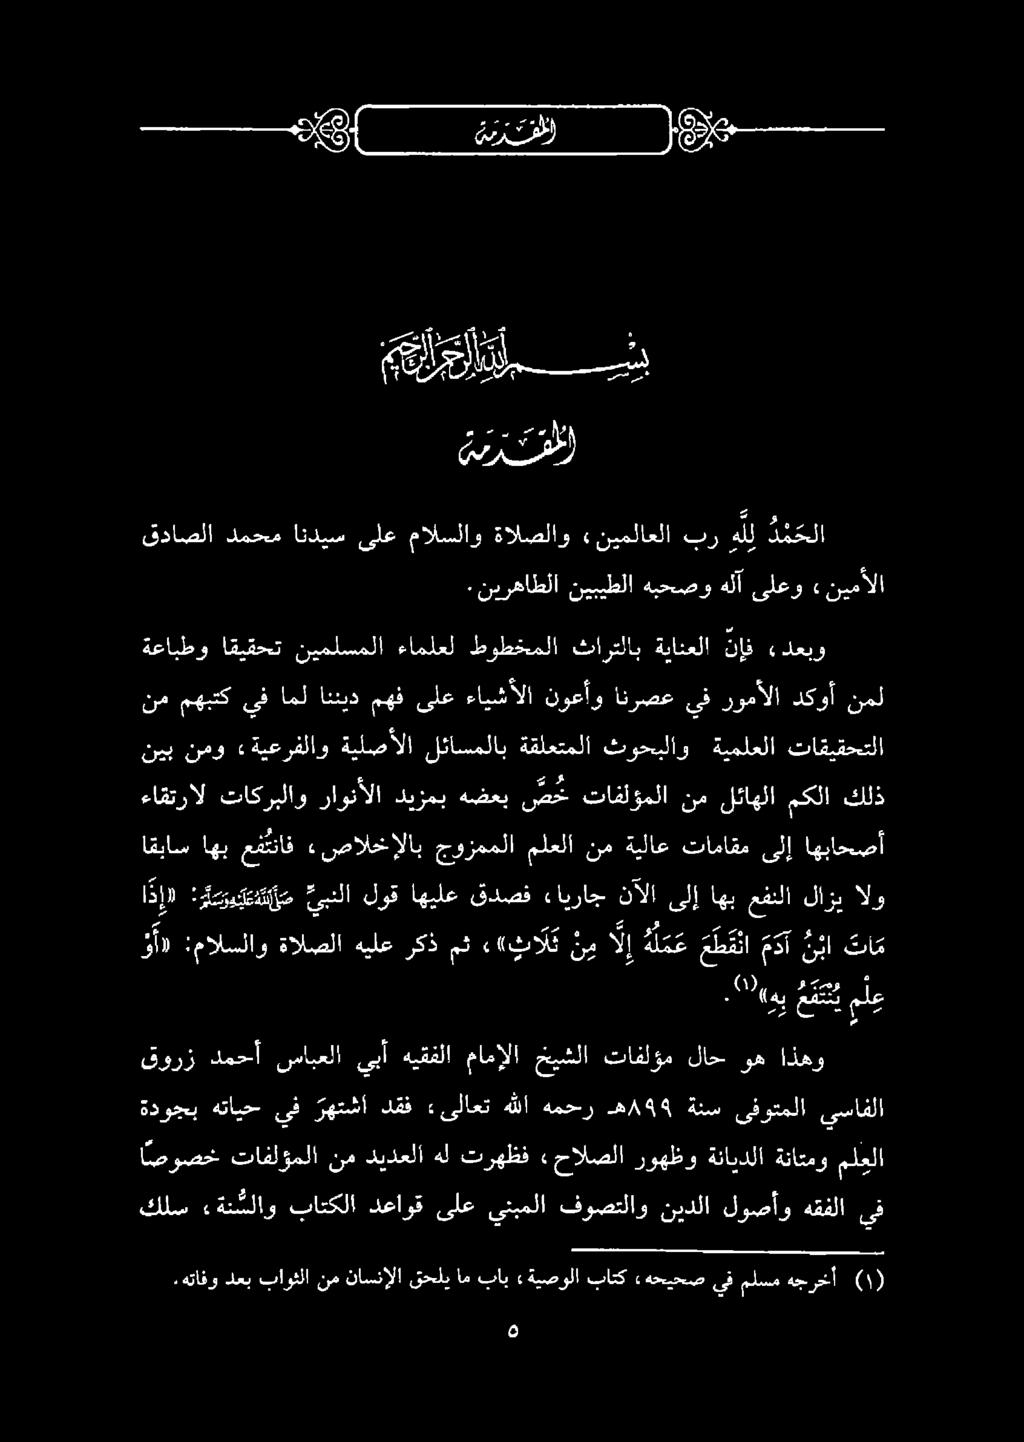 المقدمة
بسم الله الرحمن الرحيم
المقدمة
الحَمْدُ لِلَّهِ رب العالمين، والصلاة والسلام على سيدنا محمد الصادق
الأمين، وعلى آله وصحبه الطيبين الطاهرين.
وبعد، فإنّ العناية بالتراث المخطوط لعلماء المسلمين تحقيقا وطباعة
لمن أوكد الأمور في عصرنا وأعون الأشياء على فهم ديننا لما في كتبهم من
التحقيقات العلمية والبحوث المتعلقة بالمسائل الأصلية والفرعية، ومن بين
ذلك الكم الهائل من المؤلفات خُصَّ بعضه بمزيد الأنوار والبركات لارتقاء
أصحابها إلى مقامات عالية من العلم الممزوج بالإخلاص، فانتُفع بها سابقا
ولا يزال النفع بها إلى الآن جاريا، فصدق عليها قول النبيّ صَلَّى اللَّهُ عَلَيْهِ وَسَلَّمَ: «إِذَا
مَاتَ ابْنُ آدَمَ انْقَطَعَ عَمَلُهُ إِلَّا مِنْ ثَلَاثٍ»، ثم ذكر عليه الصلاة والسلام: «أَوْ
عِلْمٍ يُنْتَفَعُ بِهِ»(١).
وهذا هو حال مؤلفات الشيخ الإمام الفقيه أبي العباس أحمد زروق
الفاسي المتوفى سنة ٨٩٩هـ رحمه الله تعالى، فقد اشتهرَ في حياته بجودة
العِلم ومتانة الديانة وظهور الصلاح، فظهرت له العديد من المؤلفات خصوصًا
في الفقه وأصول الدين والتصوف المبني على قواعد الكتاب والسُّنة، سلك
(١) أخرجه مسلم في صحيحه، كتاب الوصية، باب ما يلحق الإنسان من الثواب بعد وفاته.
٥